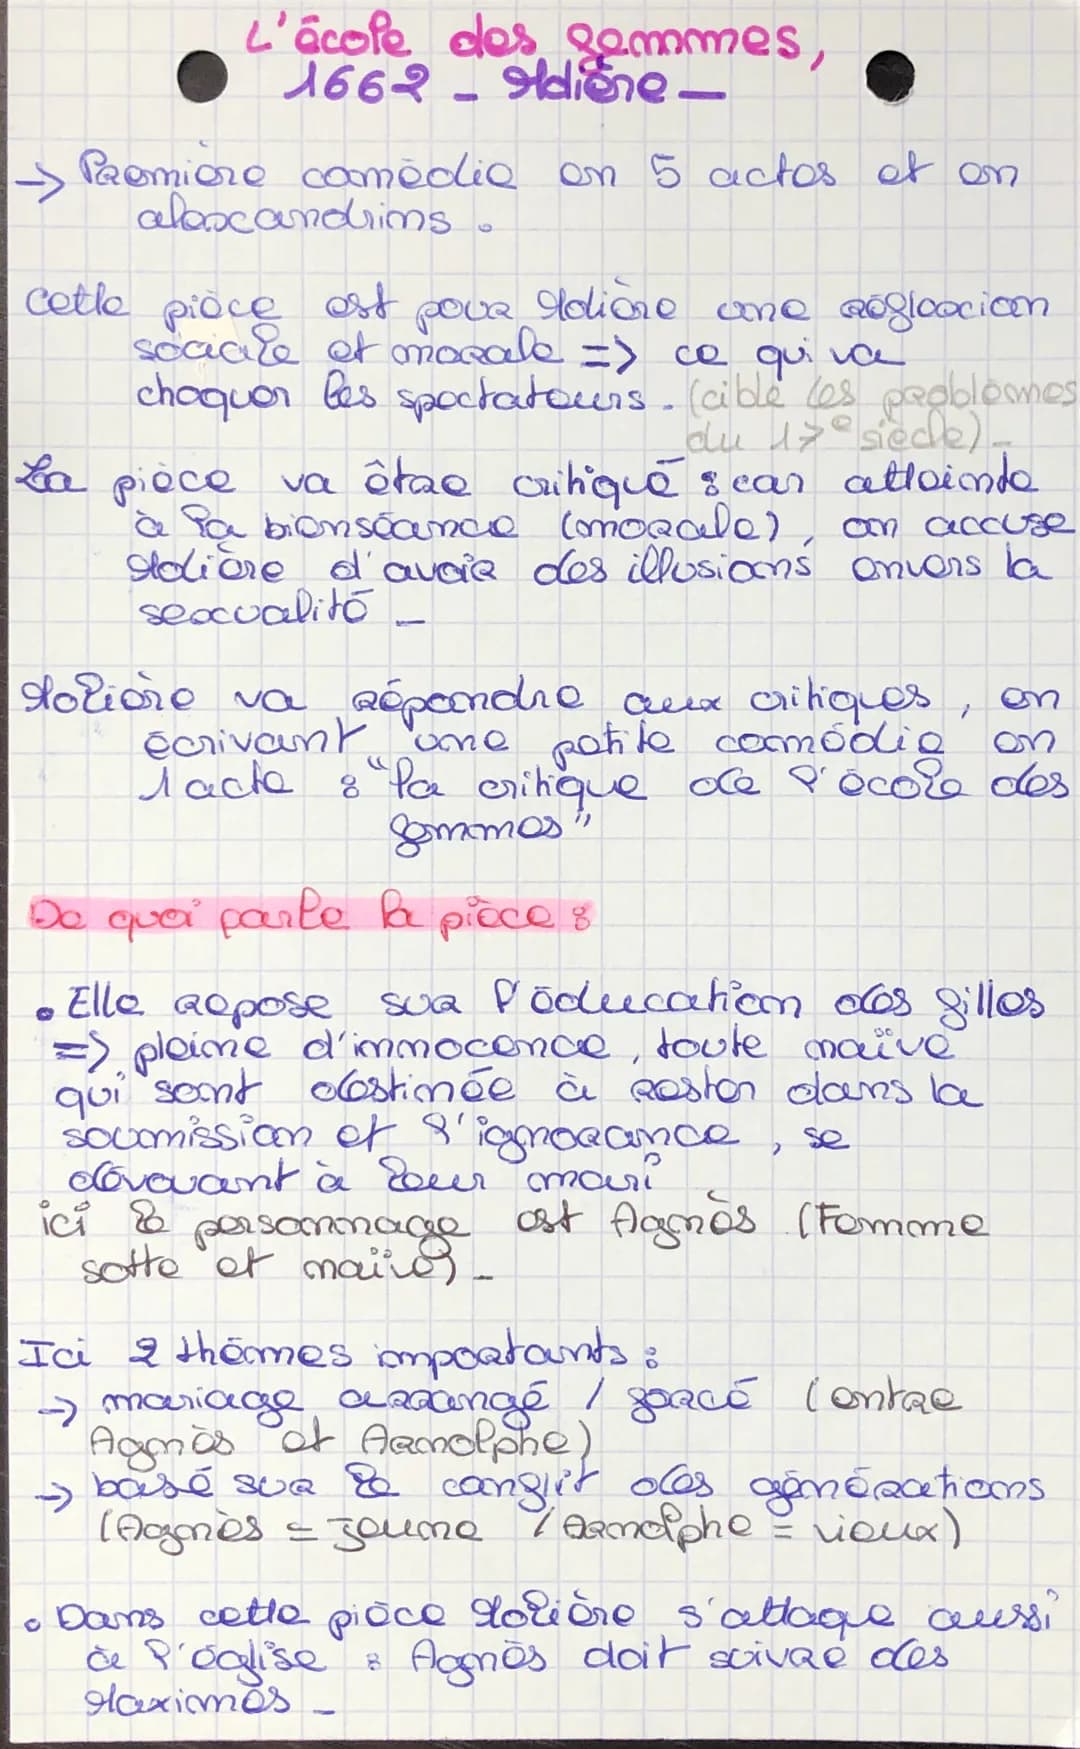 L'école des femmes,
1662 - Molière -
-> Première comédie en 5 actes et en
alexandrins.
cette pièce est pour Molière une réflexion
sociale et morale => ce qui va
choquer les spectateurs. (cible les problèmes
du 17e siècle).
La pièce va être critiqué : car atteinte
à la bienséance (morale), on accuse
Molière d'avoir des illusions envers la
sexualité -
Molière va répondre aux critiques, en
écrivant une petite comédie en
1 acte : "la critique de l'école des
femmes"
De quoi parle la pièce :
• Elle repose sur l'éducation des filles
=> pleine d'innocence, toute naïve
qui sont destinée à rester dans la
soumission et l'ignorance, se
dévouant à leur mari
ici le personnage est Agnès (Femme
sotte et naïve) -
Ici 2 thèmes importants :
-> mariage arrangé / forcé (entre
Agnès et Arnolphe)
-> basé sur le conflit des générations
(Agnès = jeune / Arnolphe = vieux)
• Dans cette pièce Molière s'attaque aussi
à l'église : Agnès doit suivre des
Maximes -